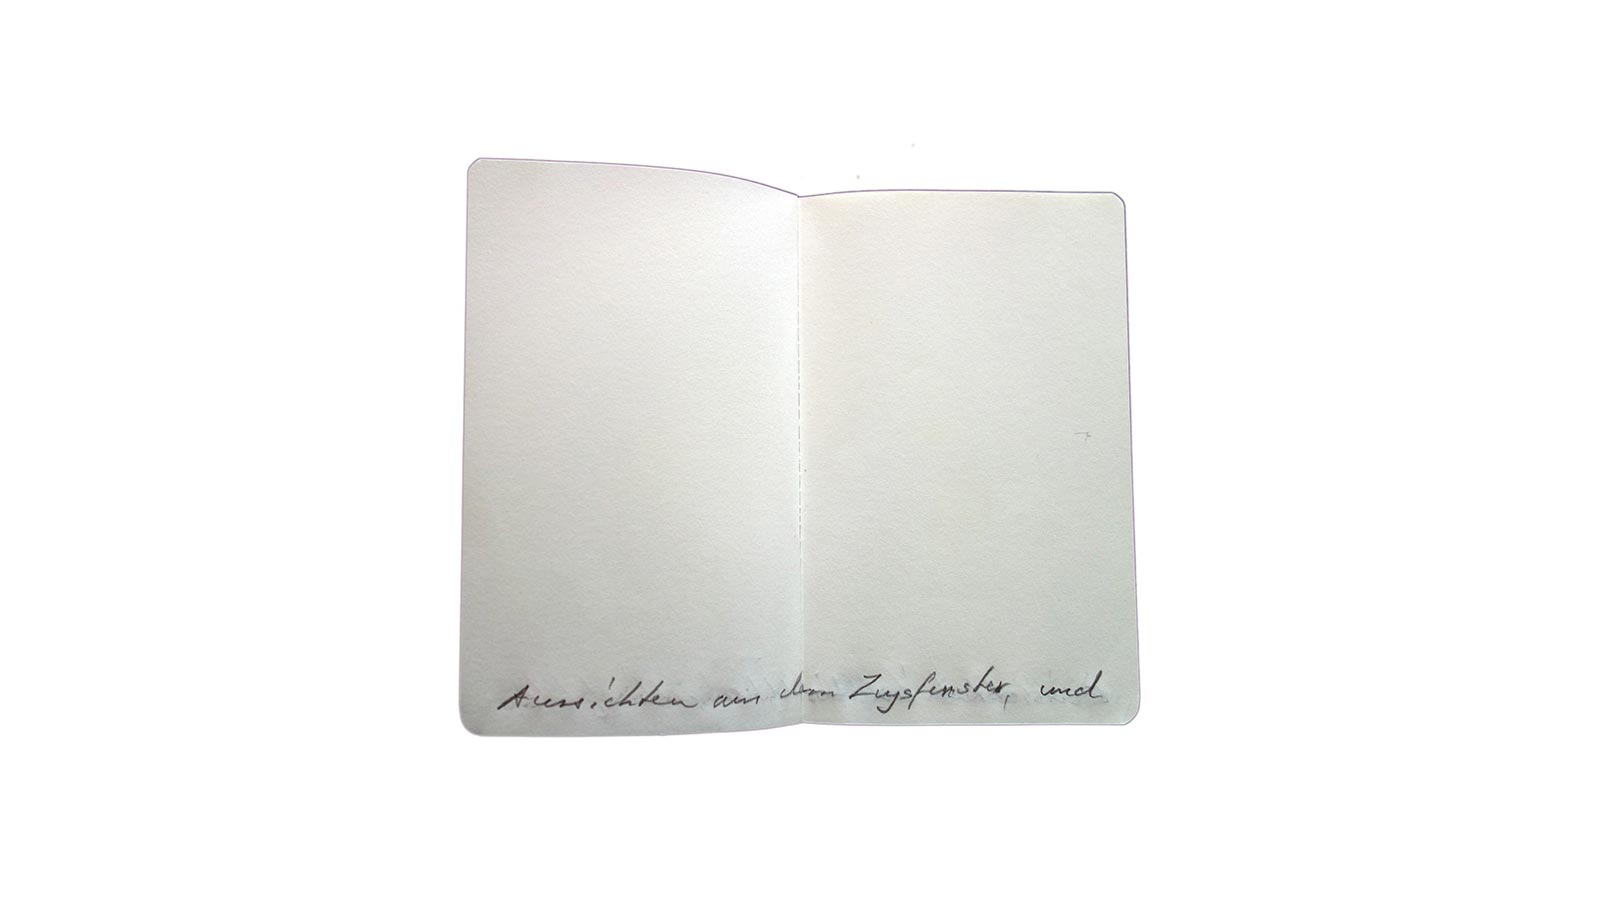 Aussichten aus dem Zugsfenster, und